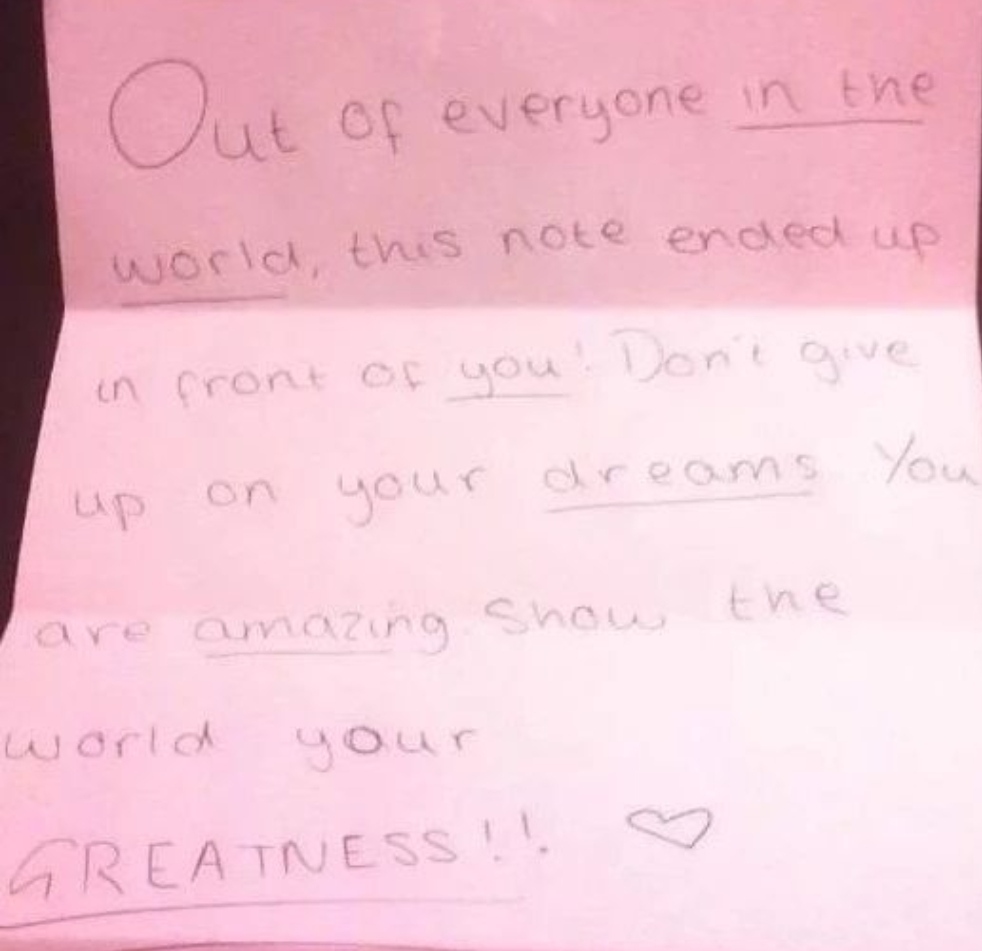 Out of everyone in the
world, this note ended up
in front of you! Don't give
up on your dreams You
are amazing. Show the
world your
GREATNESS!! ♡